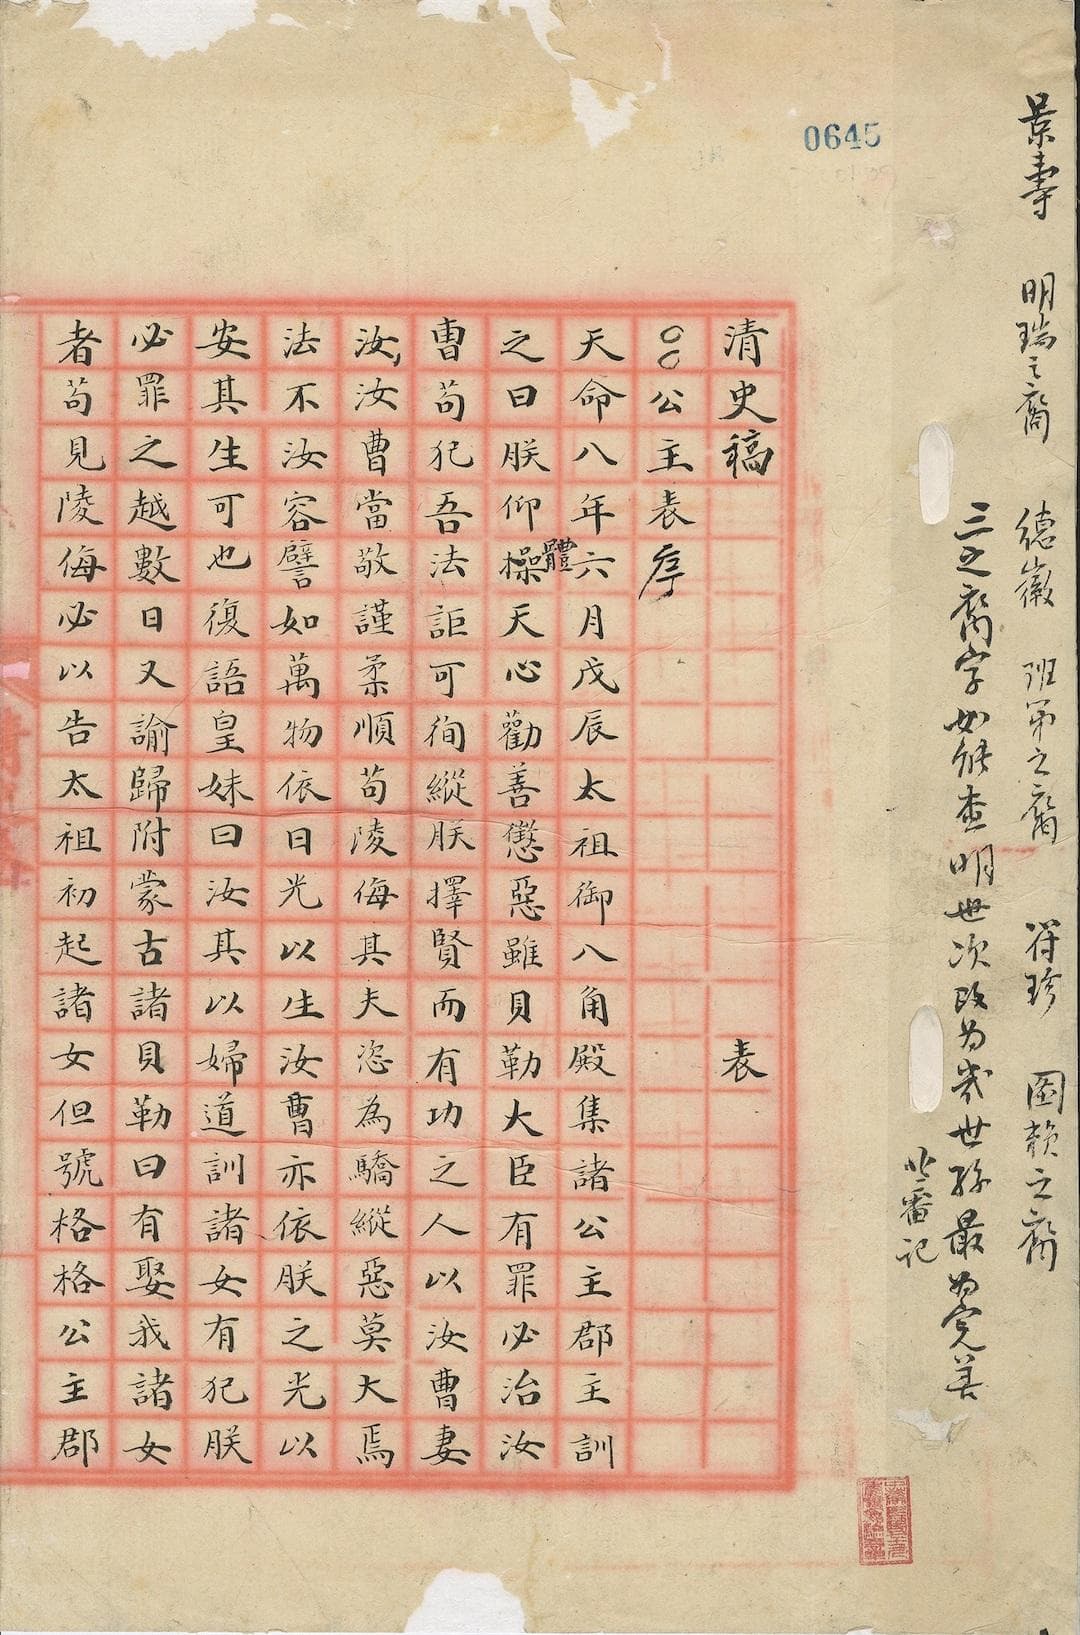 0645
景壽 明瑞之裔 德徽 班第之裔 符珍 圖賴之裔
三之裔字如能查明世次改為幾世孫最為完善
記
清史稿 表
○○公主表序
天命八年六月戊辰太祖御八角殿集諸公主郡主訓
之曰朕仰操體天心勸善懲惡雖貝勒大臣有罪必治汝
曹苟犯吾法詎可徇縱朕擇賢而有功之人以汝曹妻
汝汝曹當敬謹柔順苟陵侮其夫恣為驕縱惡莫大焉
法不汝容譬如萬物依日光以生汝曹亦依朕之光以
安其生可也復語皇妹曰汝其以婦道訓諸女有犯朕
必罪之越數日又諭歸附蒙古諸貝勒曰有娶我諸女
者苟見陵侮必以告太祖初起諸女但號格格公主郡